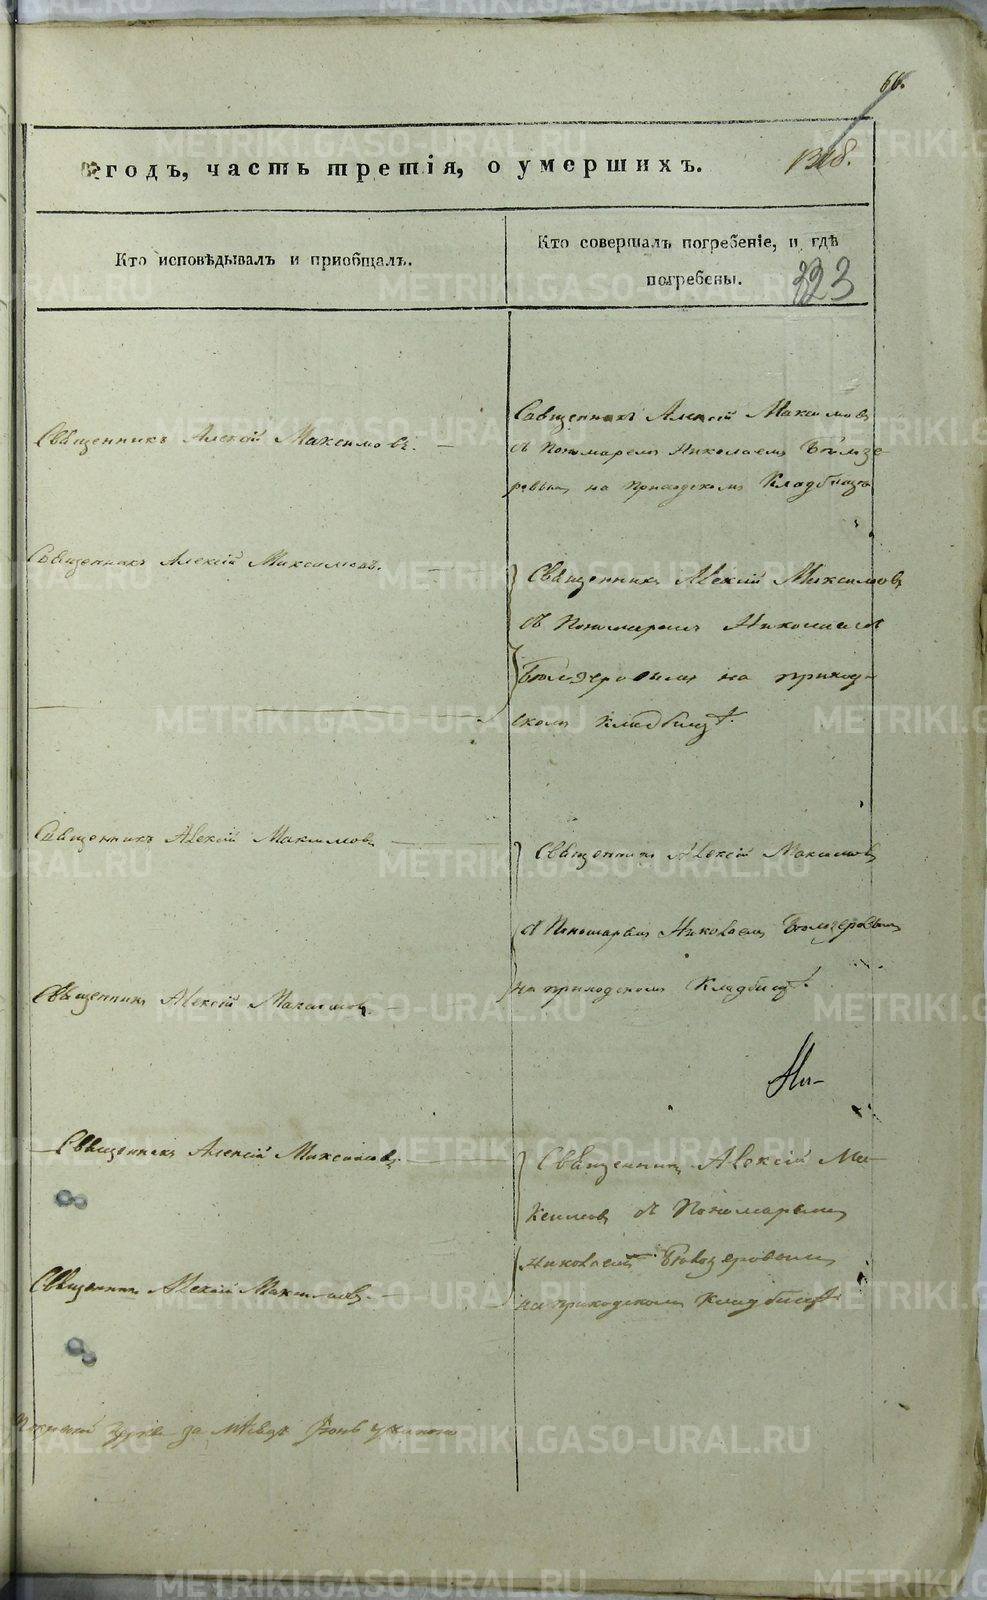 66.
годъ, часть третія, о умершихъ.
Кто исповѣдывалъ и пріобщалъ.
Кто совершалъ погребеніе, и гдѣ
погребены.
323
Священникъ Алексій Максимовъ.
Священникъ Алексій Максимовъ
съ Пономаремъ Николаемъ Бѣлозе-
ровымъ на приходскомъ Кладбищѣ
Священникъ Алексій Максимовъ.
Священникъ Алексій Максимовъ
съ Пономаремъ Николаемъ
Бѣлозеровымъ на приход-
скомъ кладбищѣ.
Священникъ Алексій Максимовъ
Священникъ Алексій Максимовъ
съ Пономаремъ Николаемъ Бѣлозеровымъ
на приходскомъ Кладбищѣ.
Священникъ Алексій Максимовъ.
Священникъ Алексій Максимовъ.
Священникъ Алексій Ма-
ксимовъ съ Пономаремъ
Николаемъ Бѣлозеровымъ
на приходскомъ Кладбищѣ.
Священникъ Алексій Максимовъ.
за мѣсяцъ Іюнь
METRIKI.GASO-URAL.RU